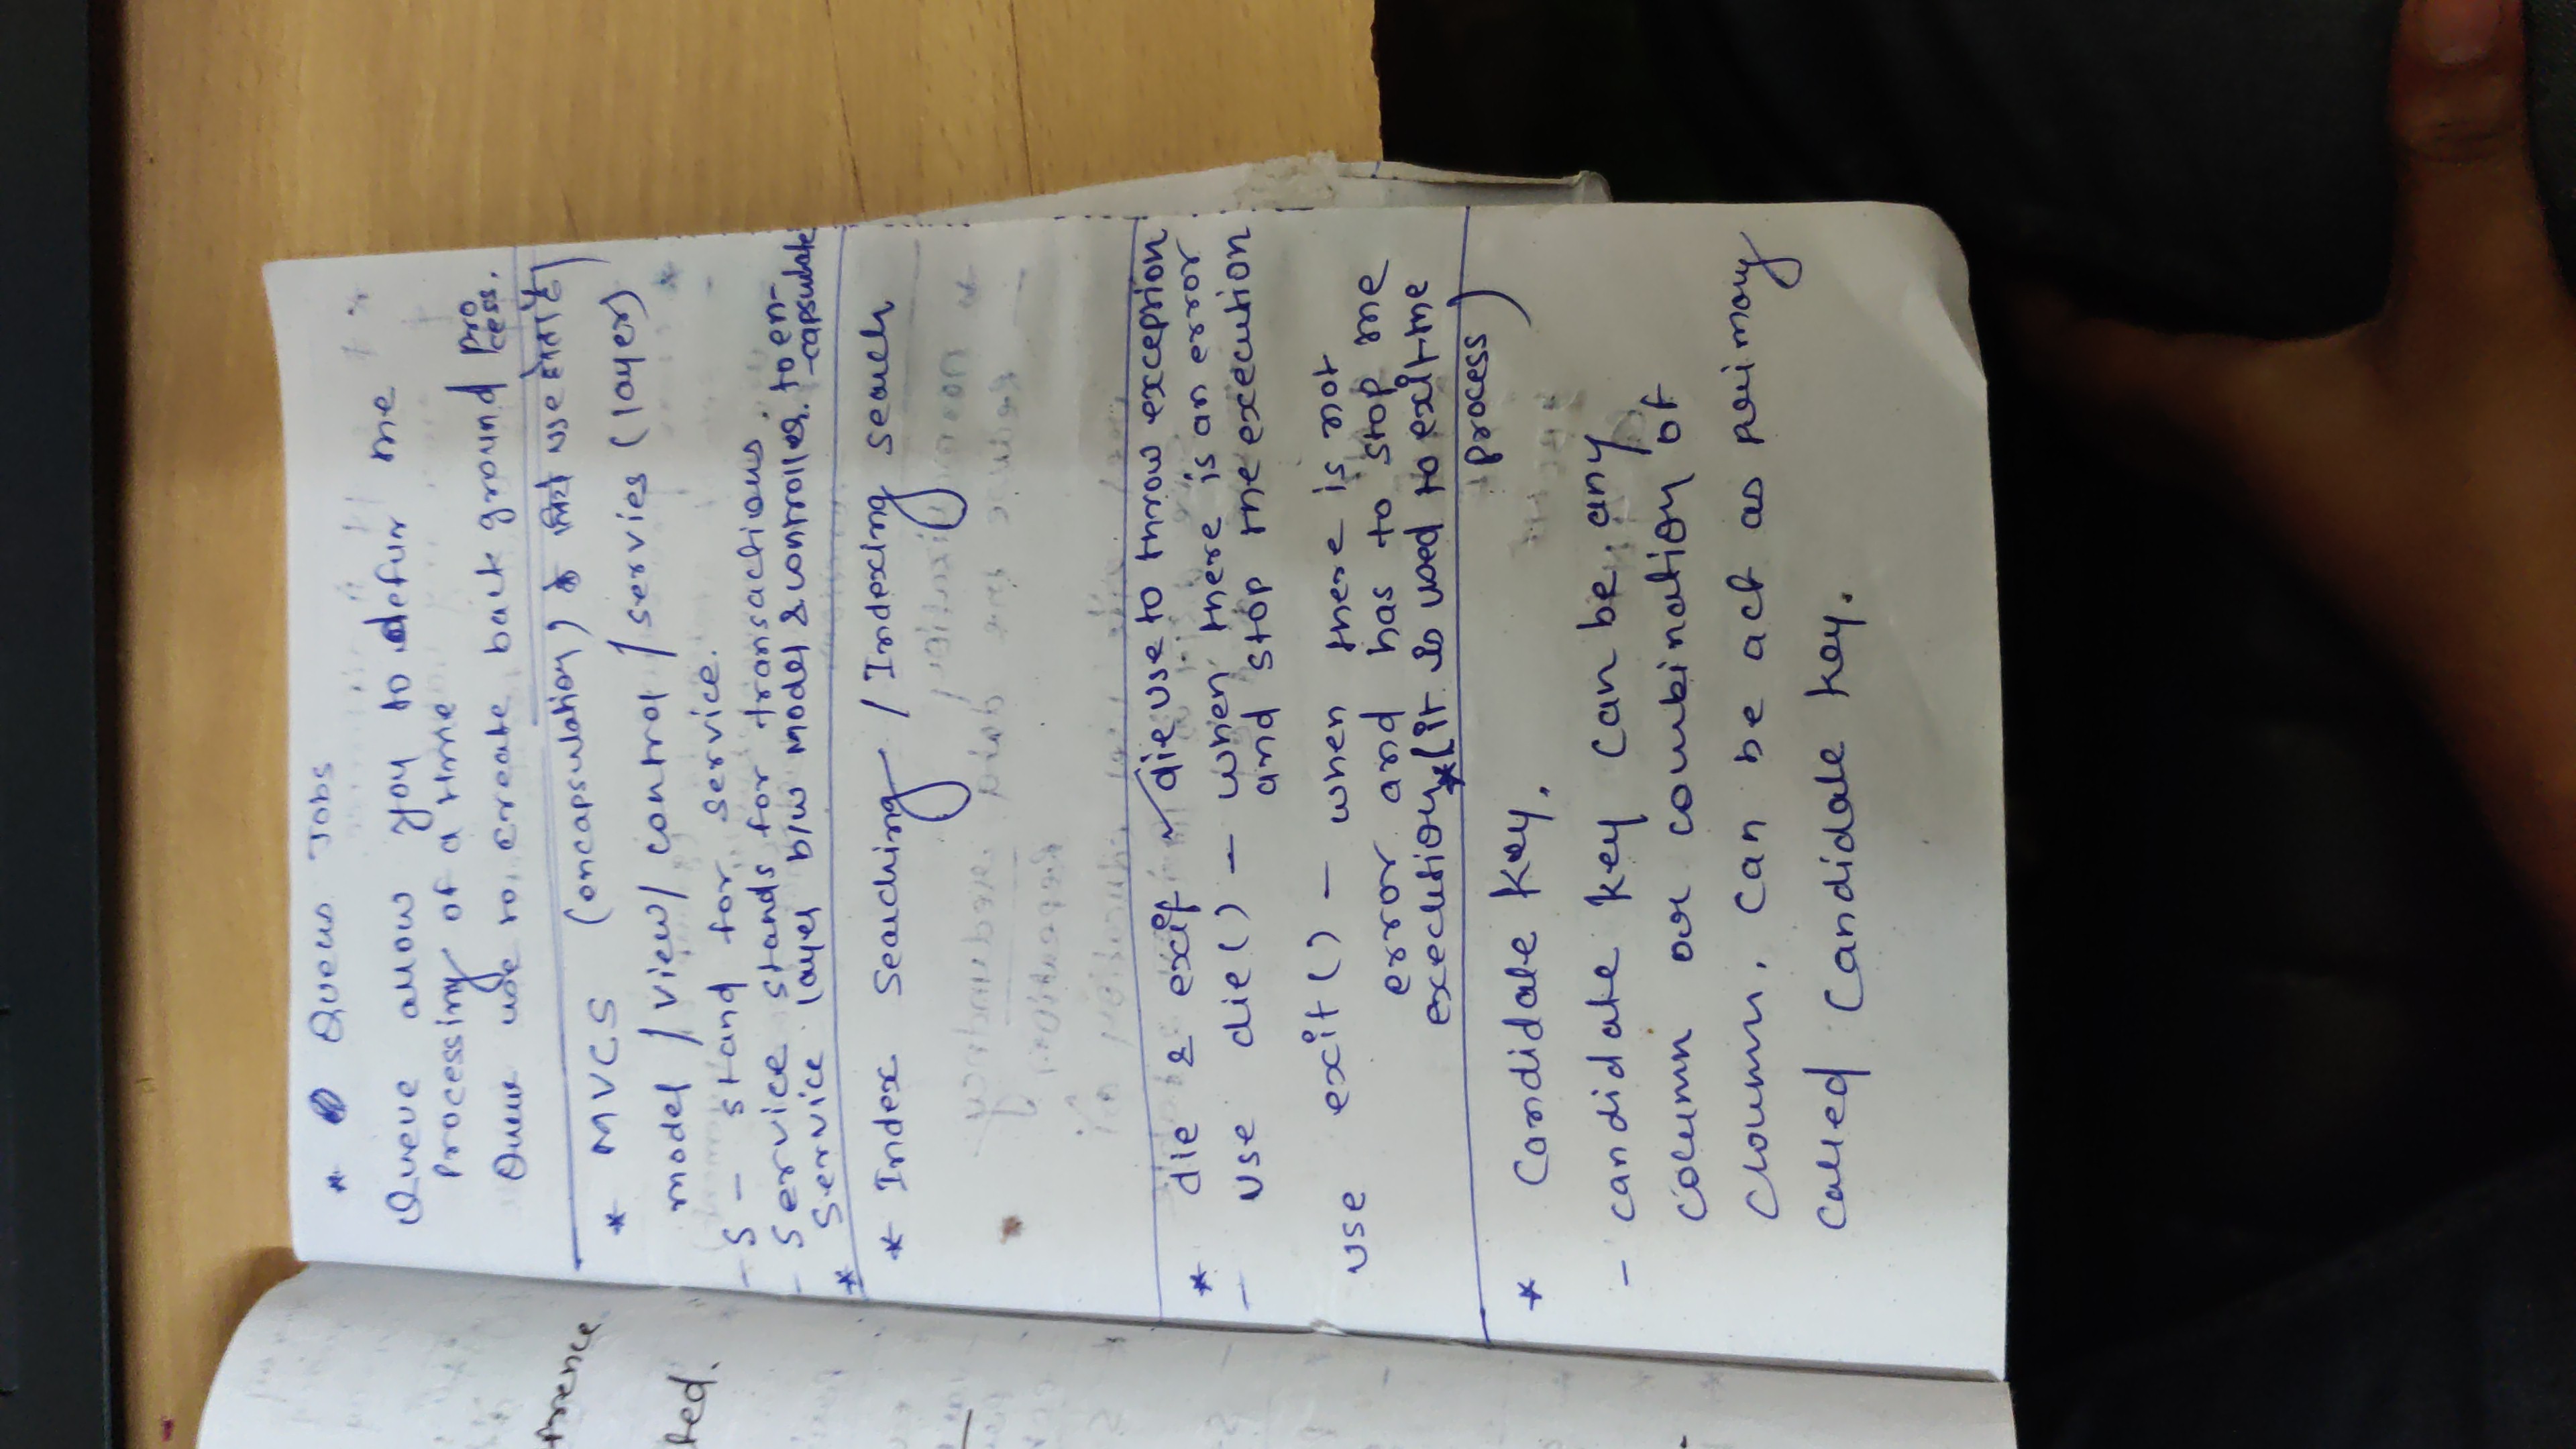 * Queus Jobs
Queue allow you to defur the
Processing of a time
Queue use to create back ground process.
* MVCS (encapsulation) के लिये use होता है
model / view / control / servies (layer)
- S - stand for service.
- Service stands for transactions.
* Service layer b/w Model & controller. to en-capsulate
* Index Searching / Indexing search
* die & exit ✓ die use to throw exception
- use die() - when there is an error
and stop the execution
use exit() - when there is not
error and has to stop the
execution * (it is used to exit the
process)
* Candidate Key.
- candidate key can be any
column or combination of
cloumn. can be act as primary
called Candidate key.
ference
ted.